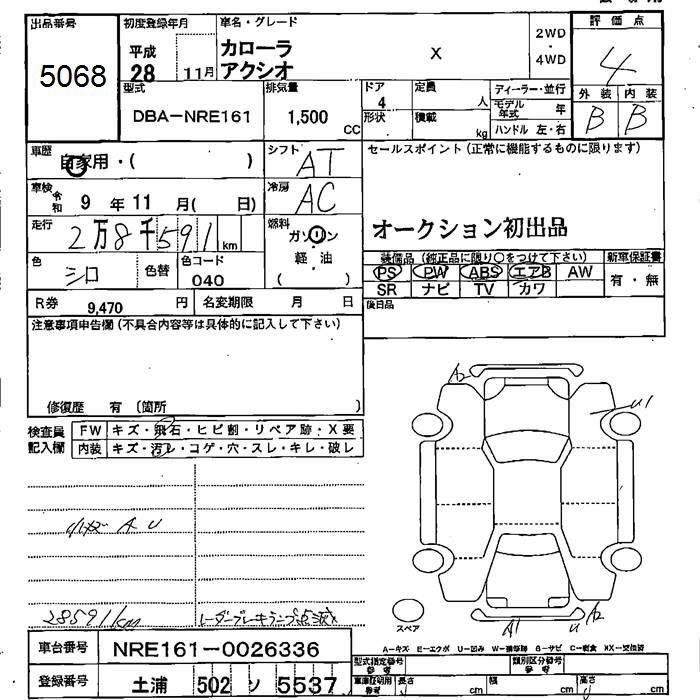 出品番号
5068
初度登録年月
平成
28 11月
車名・グレード
カローラ
アクシオ
X
2WD
・
4WD
評価点
4
型式
DBA-NRE161
排気量
1,500
CC
ドア
4
形状
定員
人
積載
kg
ディーラー・並行
モデル年式 年
ハンドル 左・右
外装 内装
B B
車歴
自家用・( )
シフト
AT
セールスポイント(正常に機能するものに限ります)
車検
令和 9年 11月( 日)
冷房
AC
オークション初出品
走行
2万8千591km
燃料
ガソリン
軽・油
( )
色
シロ
色替
色コード
040
装備品(純正品に限り○をつけて下さい)
PS PW ABS エアB AW
SR ナビ TV カワ
新車保証書
有・無
R券 9,470 円
名変期限 月 日
後日品
注意事項申告欄(不具合内容等は具体的に記入して下さい)
修復歴 有 (箇所 )
検査員
記入欄
FW キズ・飛石・ヒビ割・リペア跡・X要
内装 キズ・汚レ・コゲ・穴・スレ・キレ・破レ
A2
U1
小キズ A U
28591km
レーダーブレーキランプ点滅
スペア
A1
U
A2
A-キズ E-エクボ U-凹み W-補修跡 S-サビ C-腐食 XX-交換済
車台番号
NRE161-0026336
登録番号
土浦 502 ソ 5537
型式指定番号
類別区分番号
車庫証明用
長さ cm
幅 cm
高さ cm